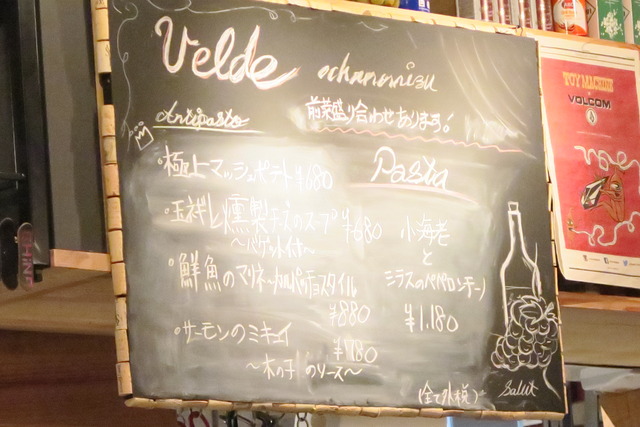 Velde ochanomizu
Antipasto
前菜盛り合わせあります!
極上マッシュポテト ¥680
玉ねぎと燻製チーズのスープ ¥680
〜バゲット付〜
鮮魚のマリネ〜カルパッチョスタイル
¥880
サーモンのミキュイ
¥780
〜木の子のソース〜
Pasta
小海老
と
シラスのペペロンチーノ
¥1,180
(全て外税)
Salut
TOY MACHINE
VOLCOM